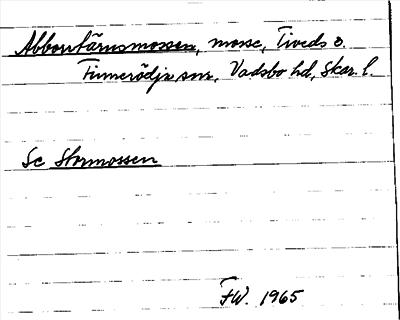 Abborrtärnsmossen, mosse, Tiveds o.
Finnerödja snr, Vadsbo hd, Skar. l.
Se Stormossen
FW. 1965